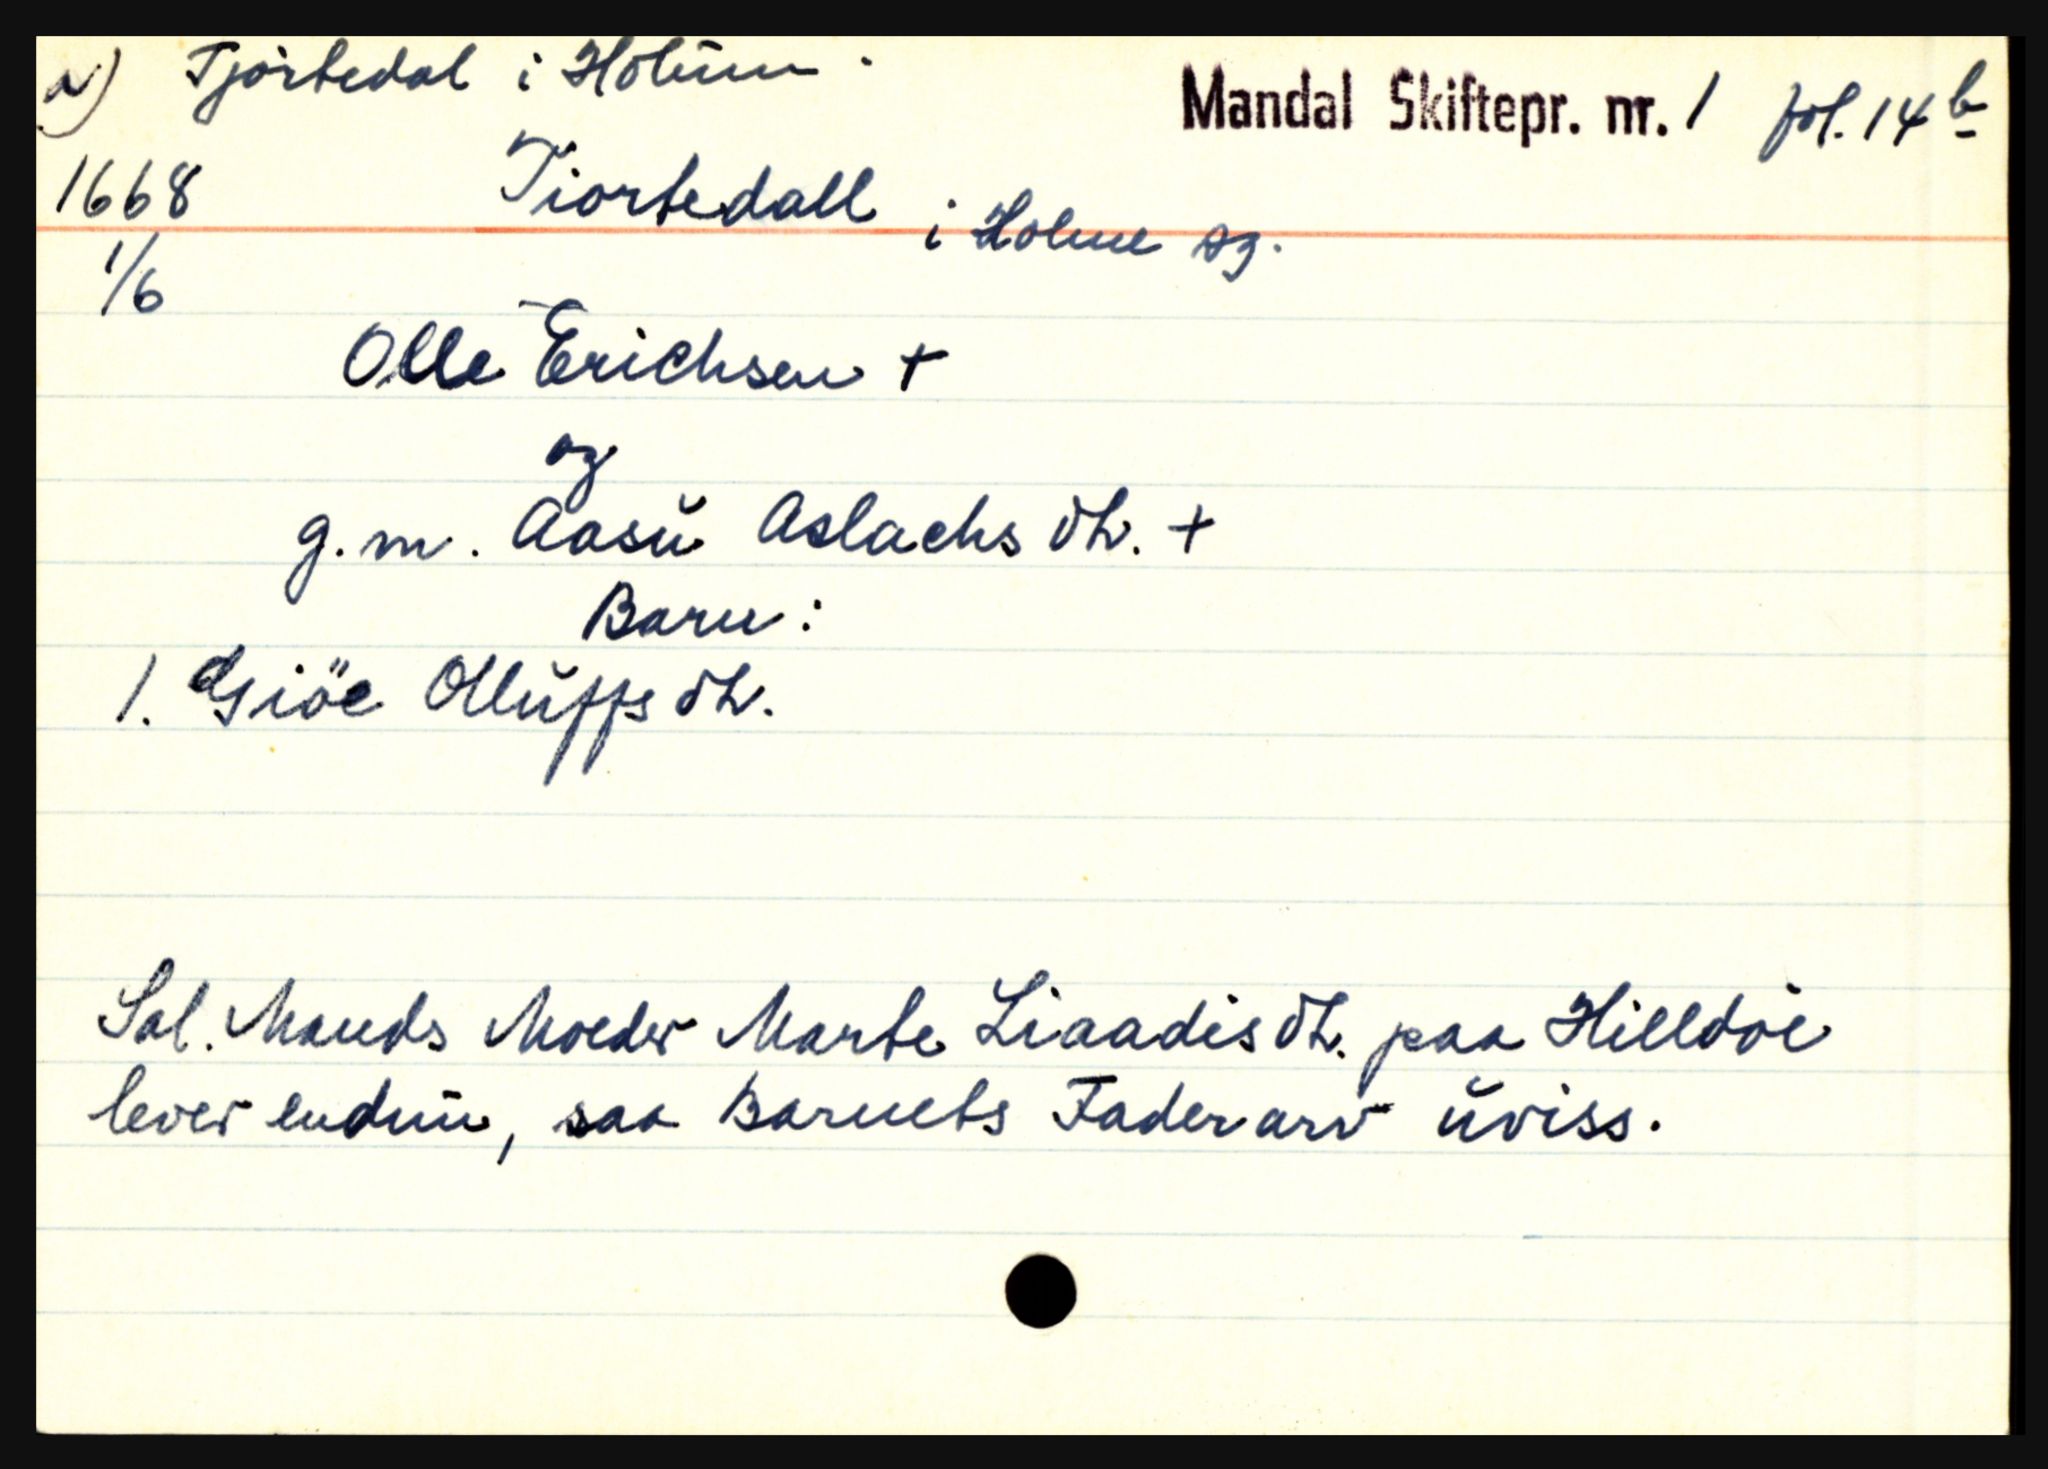 a) Tjortedal i Holum.
Mandal Skiftepr. nr. 1 fol. 14 b
1668 Tiortedall i Holme sg.
1/6
Olle Erichsen +
og
g. m. Aasŭ Aslachs dtr. +
Barn:
1. Giöe Ollŭffs dtr.
Sal. Mands Moeder Marte Liaadis dtr. paa Hilldöe
lever endnŭ, saa Barnets Faderarv ŭviss.